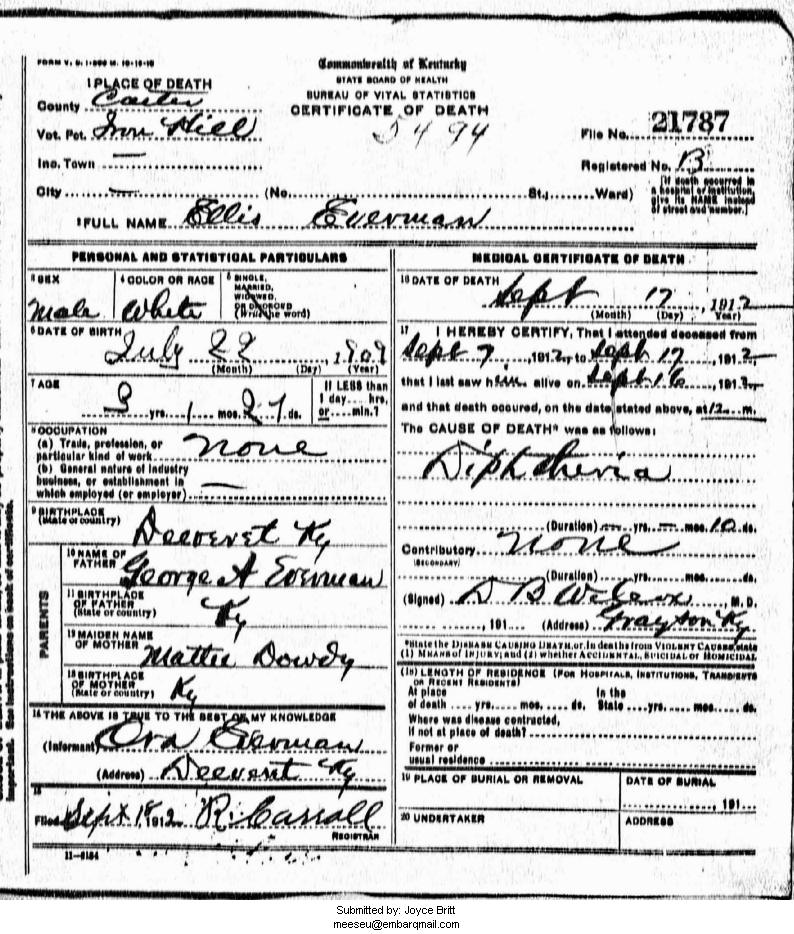 FORM V. S. 1-
Commonwealth of Kentucky
STATE BOARD OF HEALTH
BUREAU OF VITAL STATISTICS
CERTIFICATE OF DEATH
5494
1 PLACE OF DEATH
County Carter
Vot. Pct. Iron Hill
Inc. Town —
City — (No. St.; Ward)
File No. 21787
Registered No. B
[If death occurred in a hospital or institution, give its NAME instead of street and number.]
2 FULL NAME Ellis Everman
PERSONAL AND STATISTICAL PARTICULARS
3 SEX Male
4 COLOR OR RACE White
5 SINGLE, MARRIED, WIDOWED, OR DIVORCED (Write the word)
6 DATE OF BIRTH
July 22, 1909
(Month) (Day) (Year)
7 AGE
3 yrs. 1 mos. 27 ds.
If LESS than 1 day.... hrs. or.... min.?
8 OCCUPATION
(a) Trade, profession, or particular kind of work none
(b) General nature of industry business, or establishment in which employed (or employer) —
9 BIRTHPLACE (State or country) Ky
PARENTS
10 NAME OF FATHER George A Everman
11 BIRTHPLACE OF FATHER (State or country) Ky
12 MAIDEN NAME OF MOTHER Mattie Dowdy
13 BIRTHPLACE OF MOTHER (State or country) Ky
14 THE ABOVE IS TRUE TO THE BEST OF MY KNOWLEDGE
(Informant) Ora Everman
(Address) Ky
15
Filed Sept 18 1912 R. Carroll
REGISTRAR
11-8184
MEDICAL CERTIFICATE OF DEATH
16 DATE OF DEATH
Sept 17, 1912
(Month) (Day) (Year)
17 I HEREBY CERTIFY, That I attended deceased from
Sept 7, 1912, to Sept 17, 1912,
that I last saw him alive on Sept 16, 1912,
and that death occured, on the date stated above, at 12 m.
The CAUSE OF DEATH* was as follows:
Diphtheria
(Duration) — yrs. — mos. 10 ds.
Contributory none
(SECONDARY)
(Duration) yrs. mos. ds.
(Signed) D B Wilcox, M. D.
, 191 (Address) Grayson Ky
*State the DISEASE CAUSING DEATH, or, in deaths from VIOLENT CAUSES, state
(1) MEANS OF INJURY; and (2) whether ACCIDENTAL, SUICIDAL or HOMICIDAL
(18) LENGTH OF RESIDENCE (FOR HOSPITALS, INSTITUTIONS, TRANSIENTS
OR RECENT RESIDENTS)
At place of death yrs. mos. ds. In the State yrs. mos. ds.
Where was disease contracted,
If not at place of death?
Former or
usual residence
19 PLACE OF BURIAL OR REMOVAL
DATE OF BURIAL
, 191
20 UNDERTAKER
ADDRESS
Submitted by: Joyce Britt
meeseu@embarqmail.com